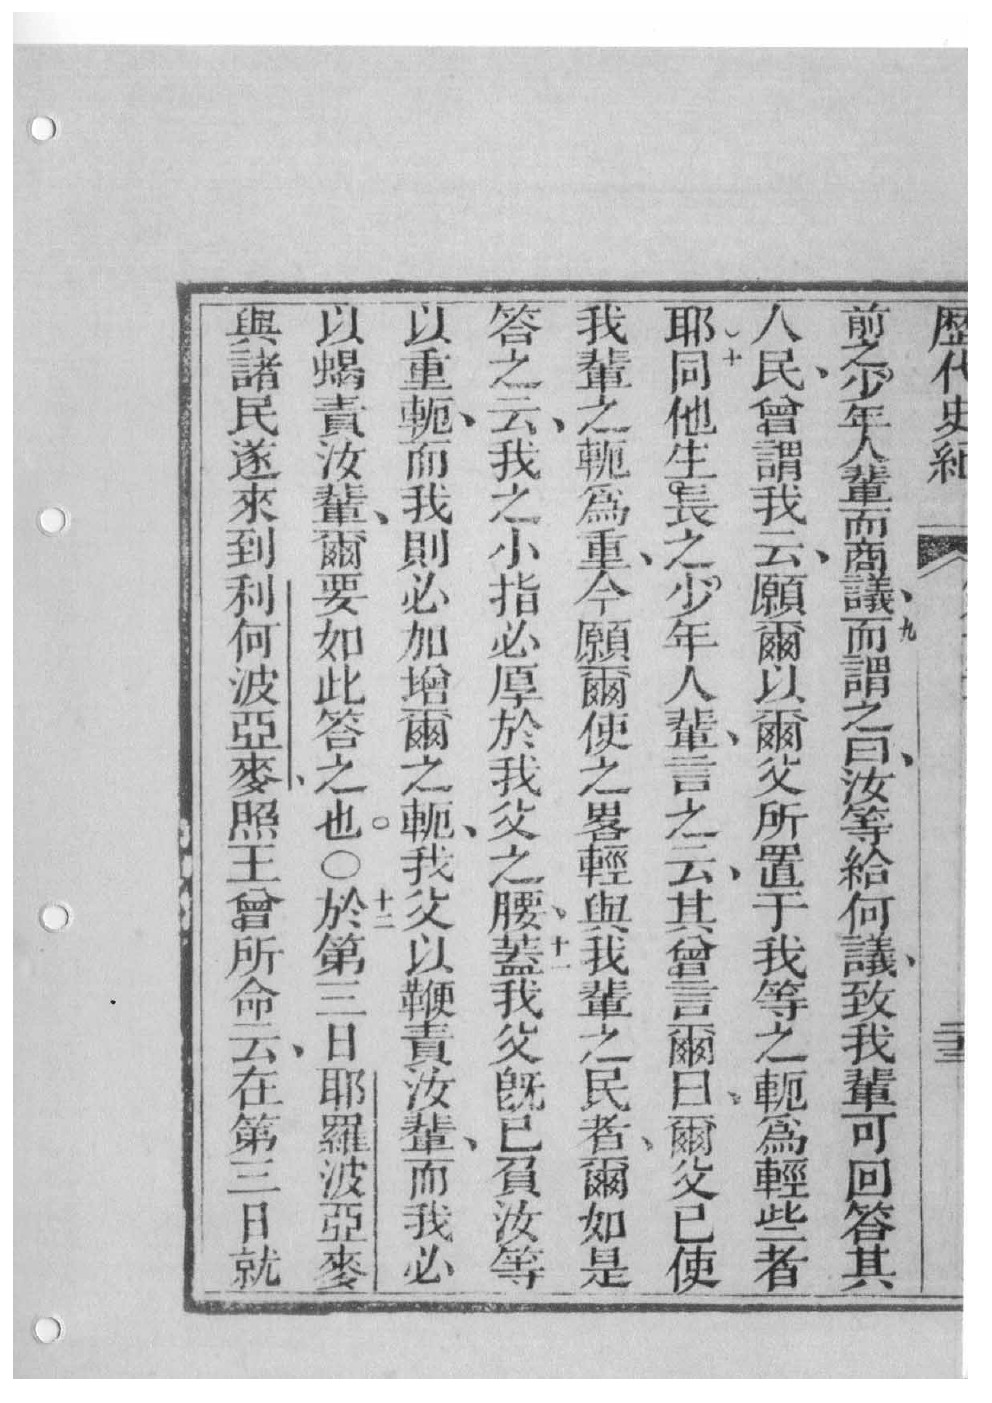 歷代史紀
前之少年人輩而商議、九而謂之曰、汝等給何議、致我輩可回答其
人民、曾謂我云、願爾以爾父所置于我等之軛爲輕些者
耶十同他生長之少年人輩、言之云、其曾言爾曰、爾父已使
我輩之軛爲重、今願爾使之畧輕與我輩之民者、爾如是
答之云、我之小指必厚於我父之腰、十一蓋我父旣已負汝等
以重軛、而我則必加增爾之軛、我父以鞭責汝輩、而我必
以蝎責汝輩、爾要如此答之也。○十二於第三日耶羅波亞麥
與諸民遂來到利何波亞麥、照王曾所命云、在第三日就